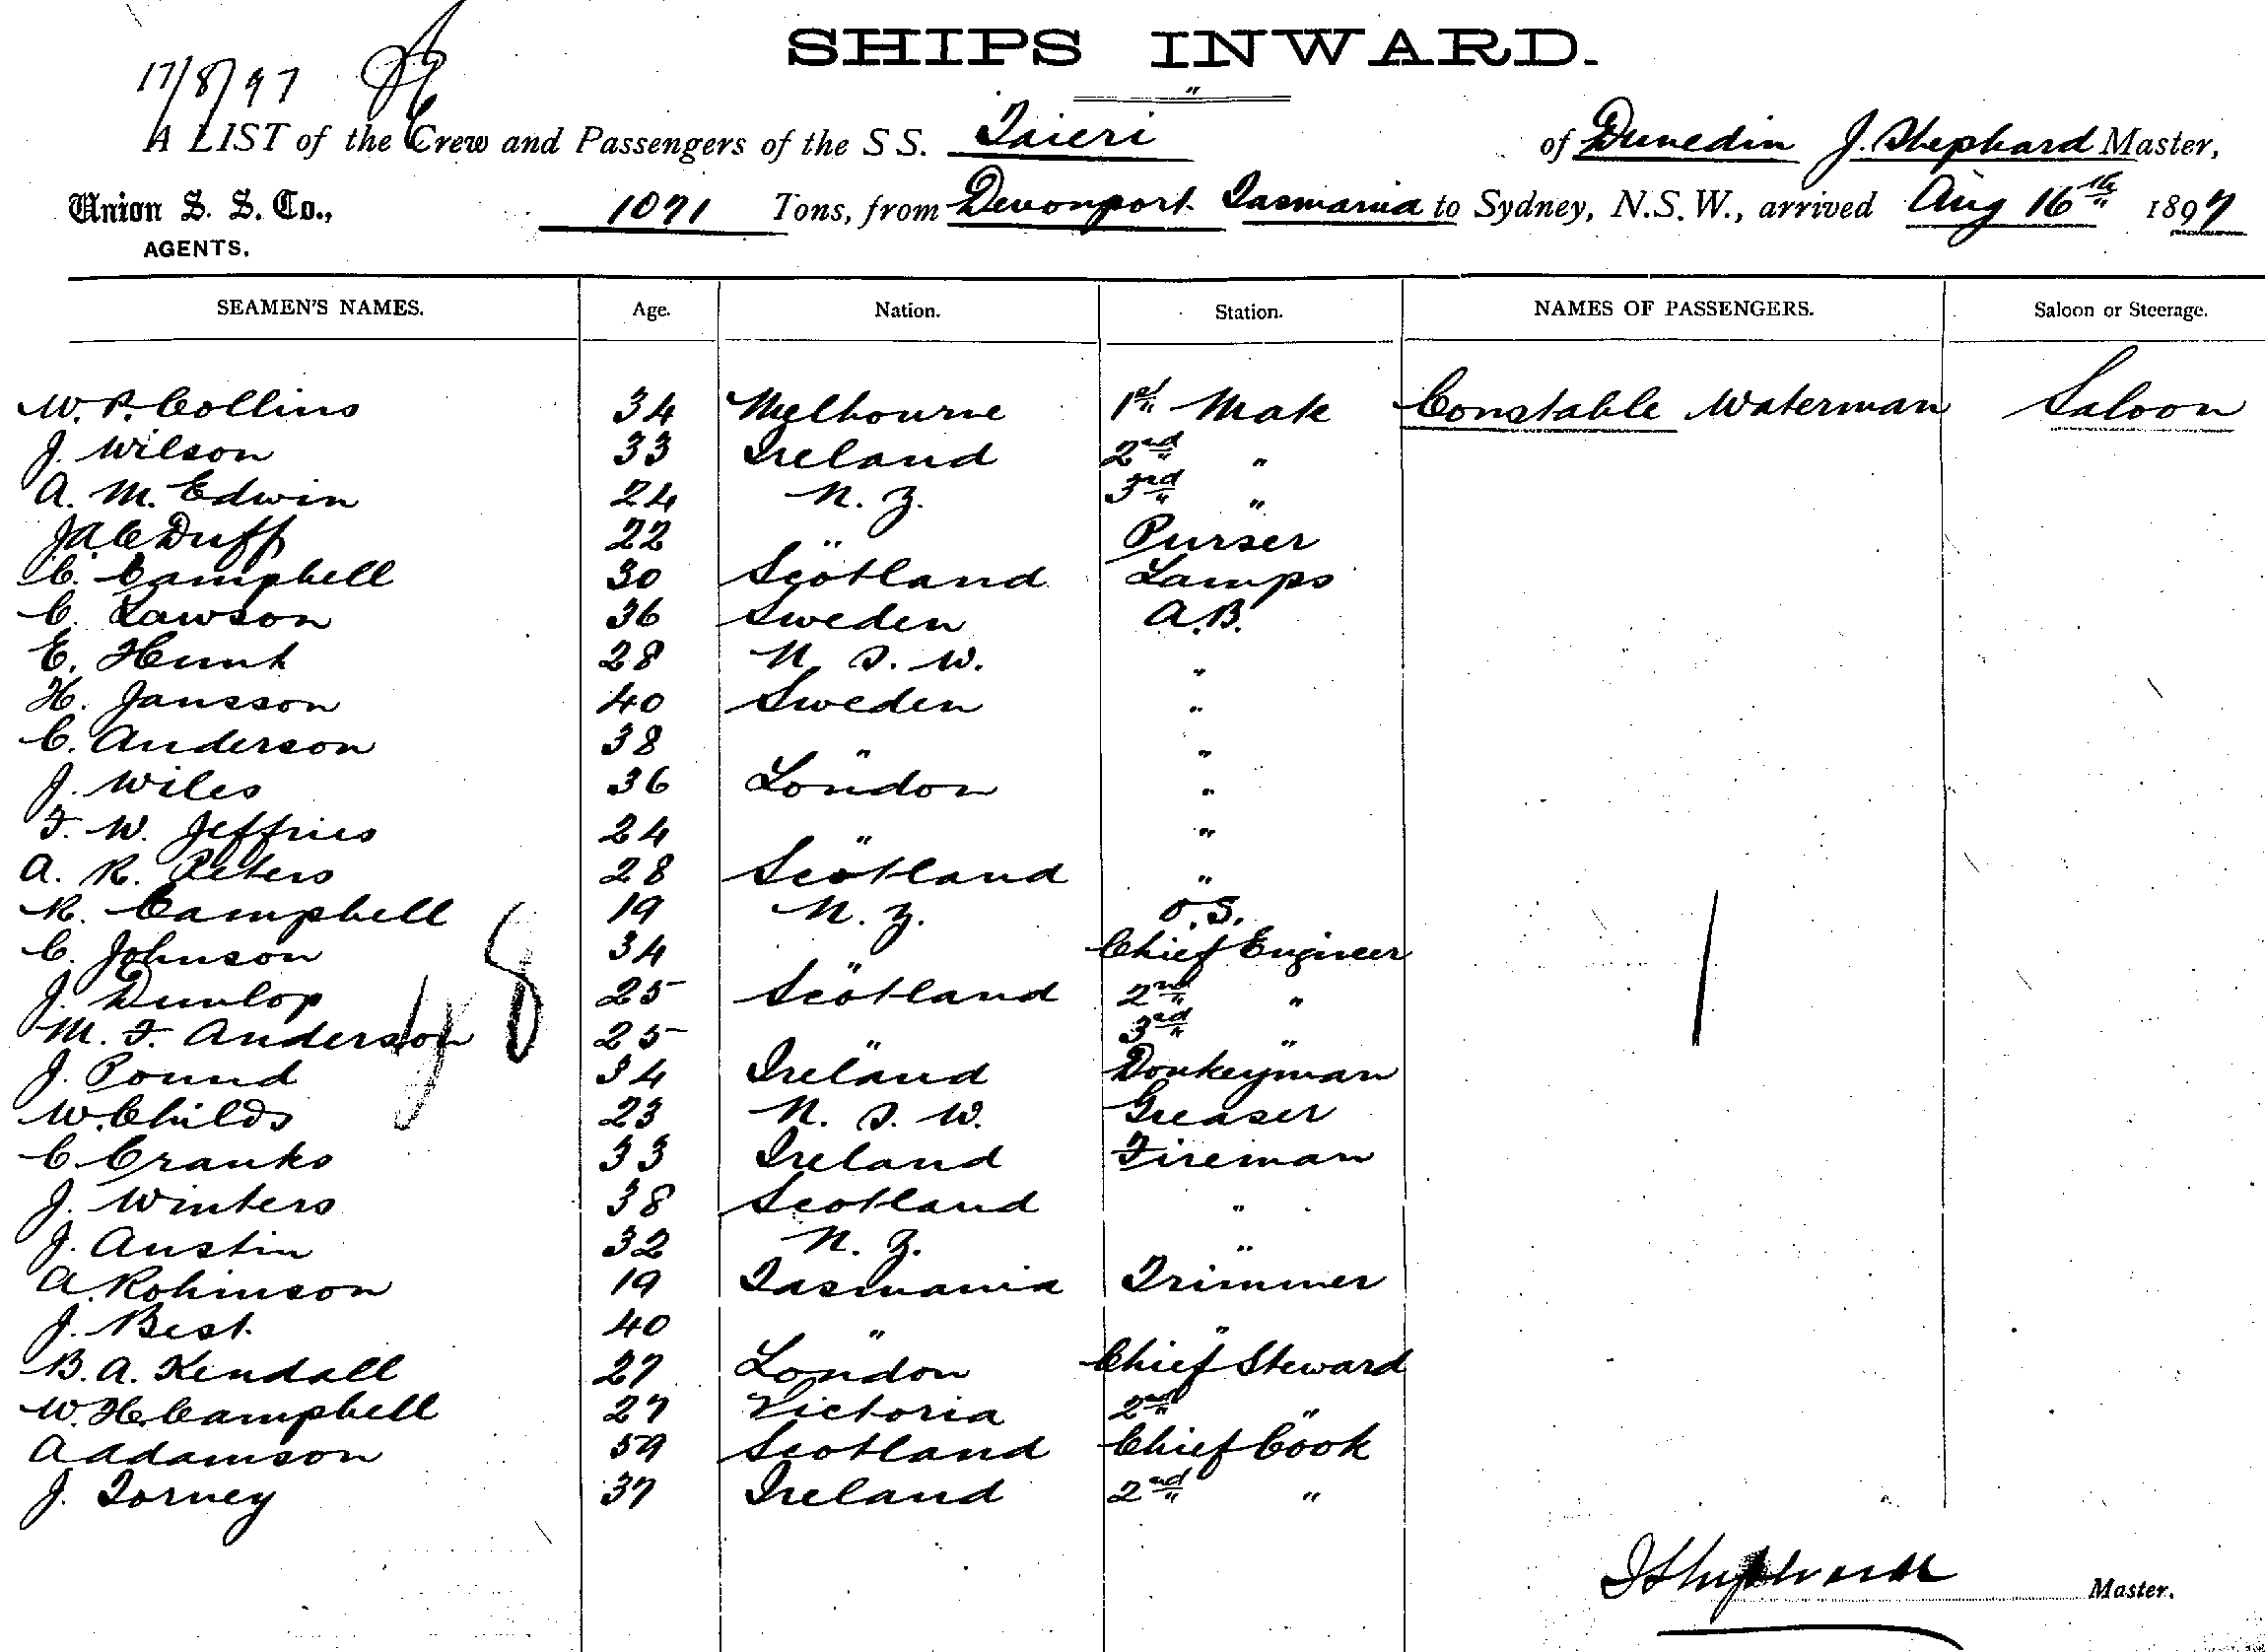 SHIPS INWARD.
17/8/97
A LIST of the Crew and Passengers of the S S. Taieri of Dunedin J. Shephard Master,
Union S. S. Co., 1071 Tons, from Devonport Tasmania to Sydney, N.S.W., arrived Aug 16th 1897
AGENTS.
SEAMEN'S NAMES. Age. Nation. Station. NAMES OF PASSENGERS. Saloon or Steerage.
W. P. Collins 34 Melbourne 1st Mate Constable Waterman Saloon
J. Wilson 33 Ireland 2nd "
A. M. Edwin 24 N. Z. 3rd "
J A C Duff 22 " Purser
C. Campbell 30 Scotland Lamps
C. Lawson 36 Sweden A.B.
E. Hunt 28 N. S. W. "
H. Jansson 40 Sweden "
C. Anderson 38 " "
J. Wiles 36 London "
F. W. Jeffries 24 " "
A. R. Peters 28 Scotland "
R. Campbell 19 N. Z. O.S.
C. Johnson 34 " Chief Engineer
J. Dunlop 25 Scotland 2nd "
M. F. Anderson 25 " 3rd "
J. Pound 34 Ireland Donkeyman
W. Childs 23 N. S. W. Greaser
C. Cranks 33 Ireland Fireman
J. Winters 38 Scotland "
J. Austin 32 N. Z. "
A. Robinson 19 Tasmania Trimmer
J. Best 40 " "
B. A. Kendall 27 London Chief Steward
W. H. Campbell 27 Victoria 2nd "
A Adamson 59 Scotland Chief Cook
J. Torney 37 Ireland 2nd "
J Shephard Master.